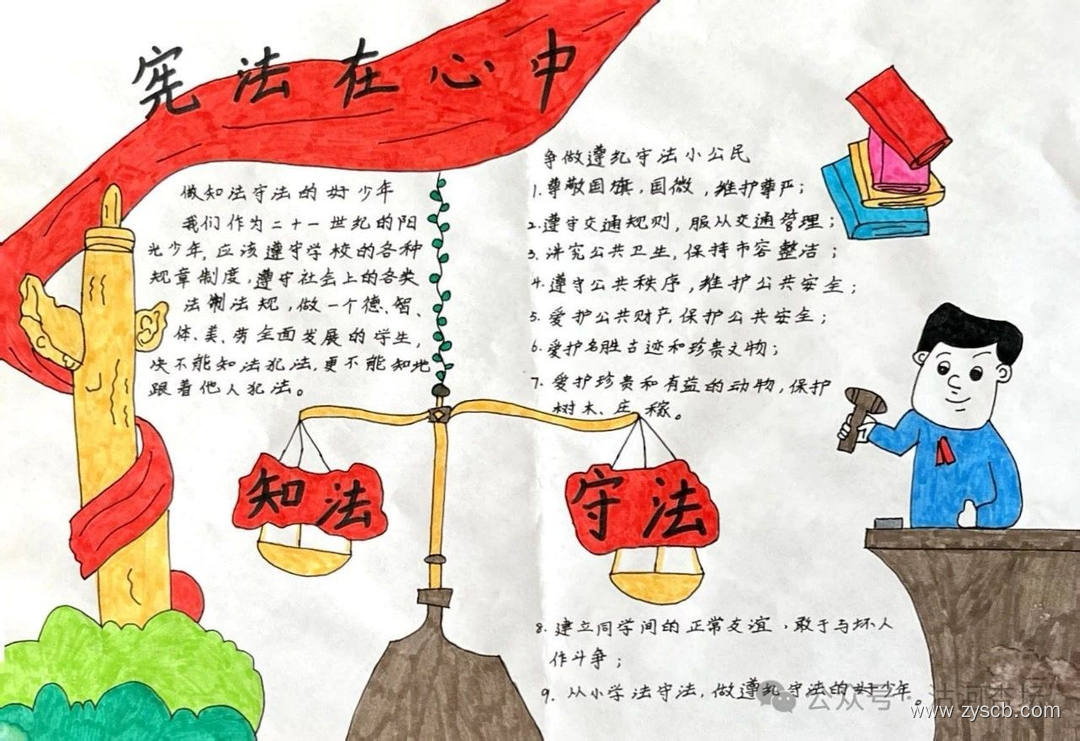 宪法在心中
做知法守法的好少年
我们作为二十一世纪的阳
光少年,应该遵守学校的各种
规章制度,遵守社会上的各类
法制法规,做一个德、智、
体、美、劳全面发展的学生,
决不能知法犯法,更不能知地
跟着他人犯法。
争做遵纪守法小公民
1.尊敬国旗,国微,维护尊严;
2.遵守交通规则,服从交通管理;
3.讲究公共卫生,保持市容整洁;
4.遵守公共秩序,维护公共安全;
5.爱护公共财产,保护公共安全;
6.爱护名胜古迹和珍贵文物;
7.爱护珍贵和有益的动物,保护
树木、庄稼。
知法
守法
8.建立同学间的正常友谊,敢于与坏人
作斗争;
9.从小学法守法,做遵纪守法的好少年。
公众号
www.zyscb.com